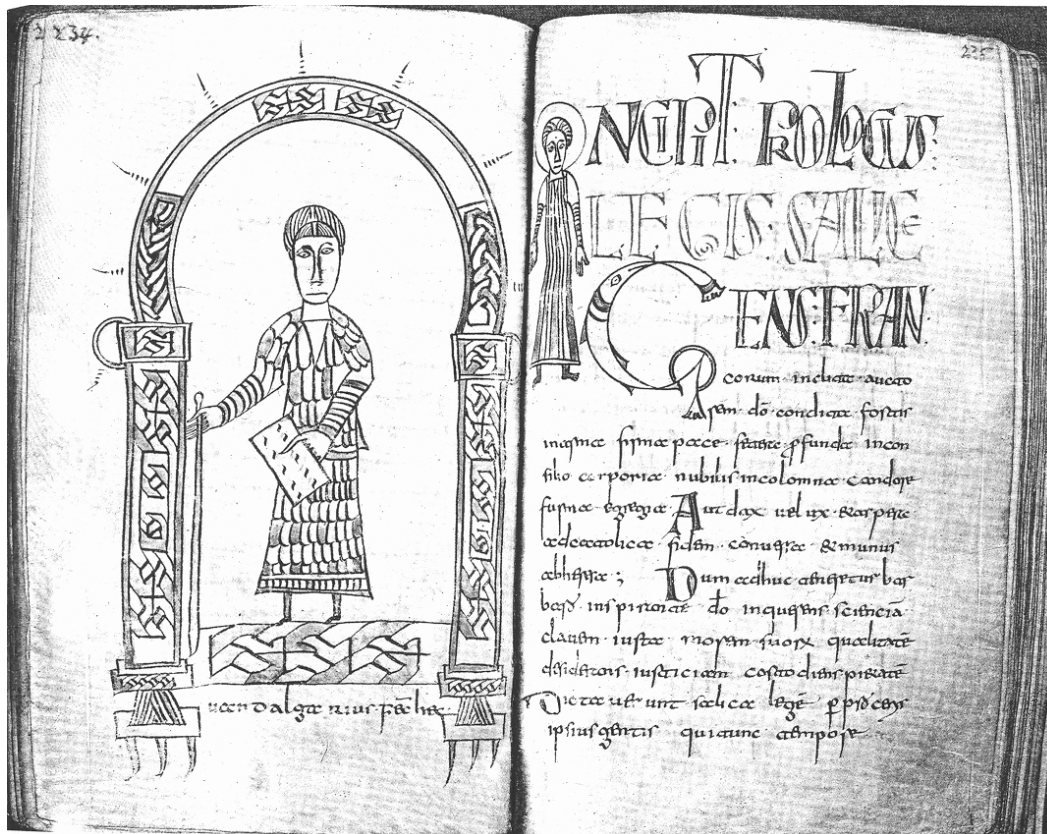 234.
uuandalgarius fec hec
235
INCIPIT PROLOGUS
LEGIS SALICE
GENS FRAN
corum inclita aucto
rem dō condita fortis
firma pace profunda in con
silio corporia nubilis incolomna candore
egregia Audax uelux et aspera
ad catolica fidem conuersa et munus
Dum adhuc teneretur bar
bara inspirante dō inquerens sciencia
clauem iusta morem suorum qualitate
desiderans iusticiam costodiens pietate
Dictauerunt salica lege per
ipsius gentis qui tunc tempore